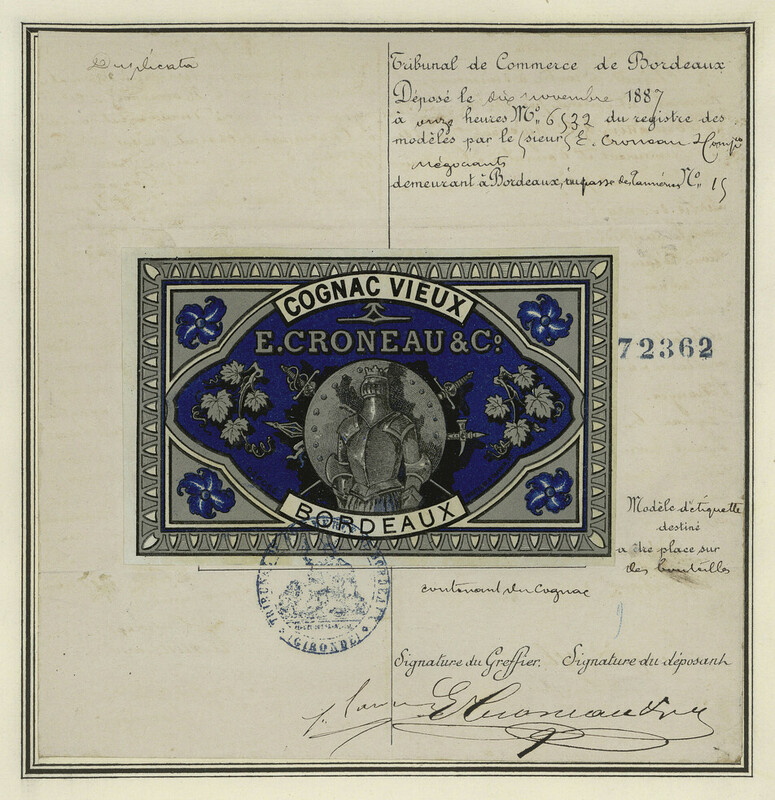 Duplicata
Tribunal de Commerce de Bordeaux
Déposé le dix novembre 1887
à onze heures Nº 6532 du registre des
modèles par le sieur E. Croneau & Comp
négociants
demeurant à Bordeaux, impasse des Tanneries Nº 15
COGNAC VIEUX
E. CRONEAU & Cº.
BORDEAUX
72362
Modèle d'étiquette
destiné
a être place sur
des bouteilles
contenant du Cognac
GIRONDE
Signature du Greffier. Signature du déposant
E Croneau